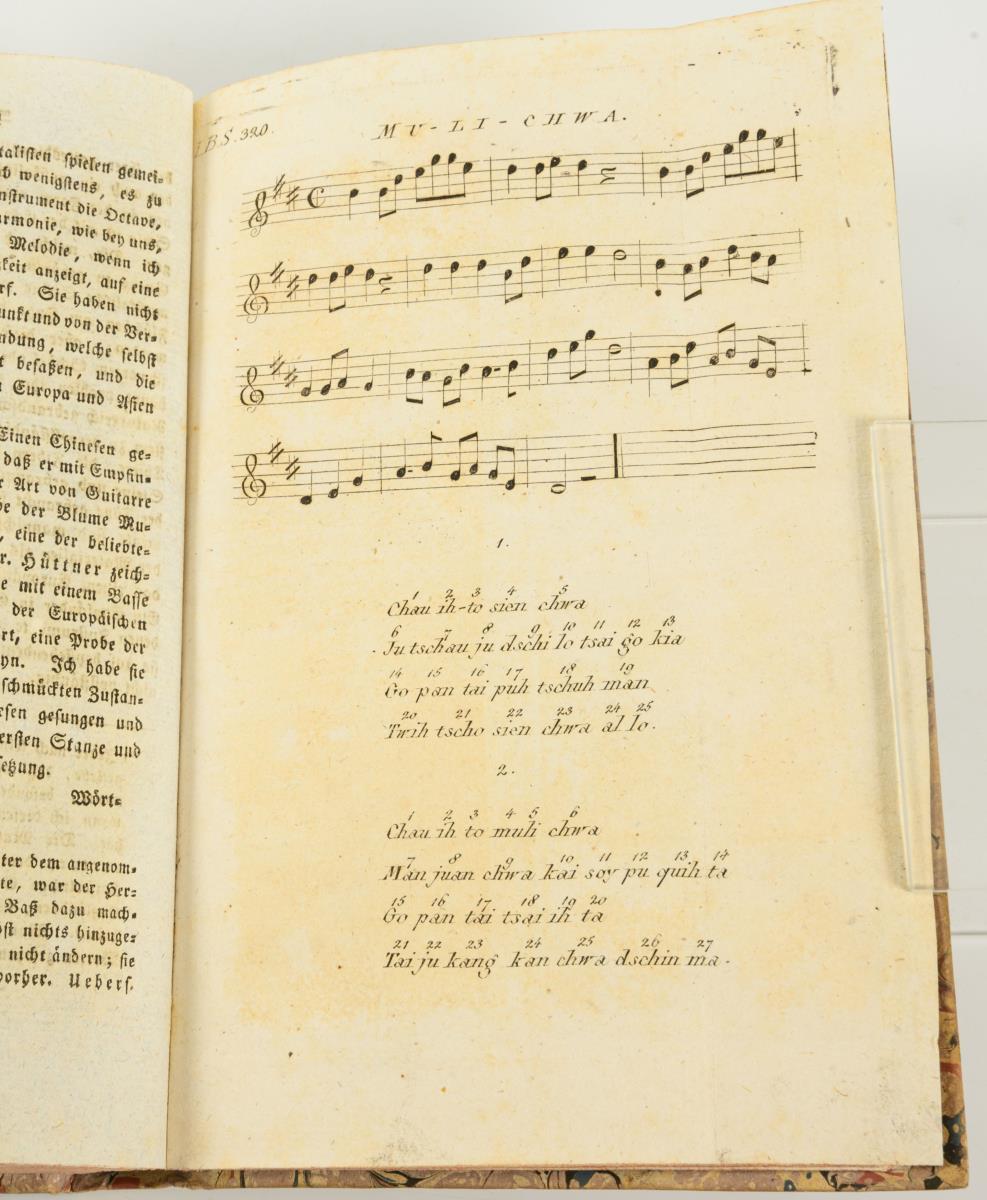 talisten spielen gemei⸗
wenigstens, es zu
nstrument die Octave,
rmonie, wie bey uns,
Melodie, wenn ich
keit anzeigt, auf eine
rf. Sie haben nicht
unkt und von der Ver⸗
ndung, welche selbst
t besaßen, und die
Europa und Asien
Einen Chinesen ge⸗
daß er mit Empfin⸗
r Art von Guitarre
be der Blume Mu⸗
, eine der beliebte⸗
r. Hüttner zeich⸗
e mit einem Basse
der Europäischen
rt, eine Probe der
yn. Ich habe sie
schmückten Zustan⸗
esen gesungen und
ersten Stanze und
setzung.
Wört⸗
ter dem angenom⸗
te, war der Her⸗
Baß dazu mach⸗
bst nichts hinzuge⸗
nicht ändern; sie
vorher. Uebers.
I.B.S. 320.
MU-LI-CHWA.
1.
1 2 3 4 5
Chau ih-to sien chwa
6 7 8 9 10 11 12 13
Ju tschau ju dschi lo tsai go kia
14 15 16 17 18 19
Go pan tai puh tschuh man
20 21 22 23 24 25
Twih tscho sien chwa al lo.
2.
1 2 3 4 5 6
Chau ih to muli chwa
7 8 9 10 11 12 13 14
Man juan chwa kai soy pu quih ta
15 16 17 18 19 20
Go pan tai tsai ih ta
21 22 23 24 25 26 27
Tai ju kang kan chwa dschin ma.